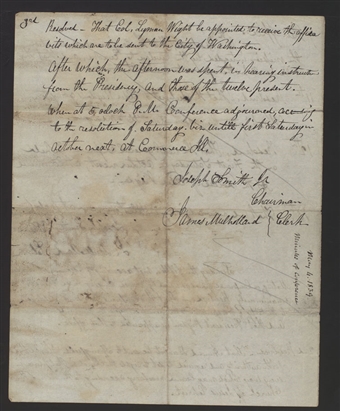 3rd Resolved - That Col. Lyman Wight be appointed to receive the affida-
vits which are to be sent to the City of Washington.
After which, the afternoon was spent in hearing instruction
from the Presidency, and those of the twelve present.
When at 5, oclock P.M. Conference adjourned, according
to the resolution of Saturday, viz: untill first Saturday in
October next, at Commerce Ill,
Joseph Smith Jr
Chairman
James Mulholland } Clerk.
May 6 1839
Minutes of Conference